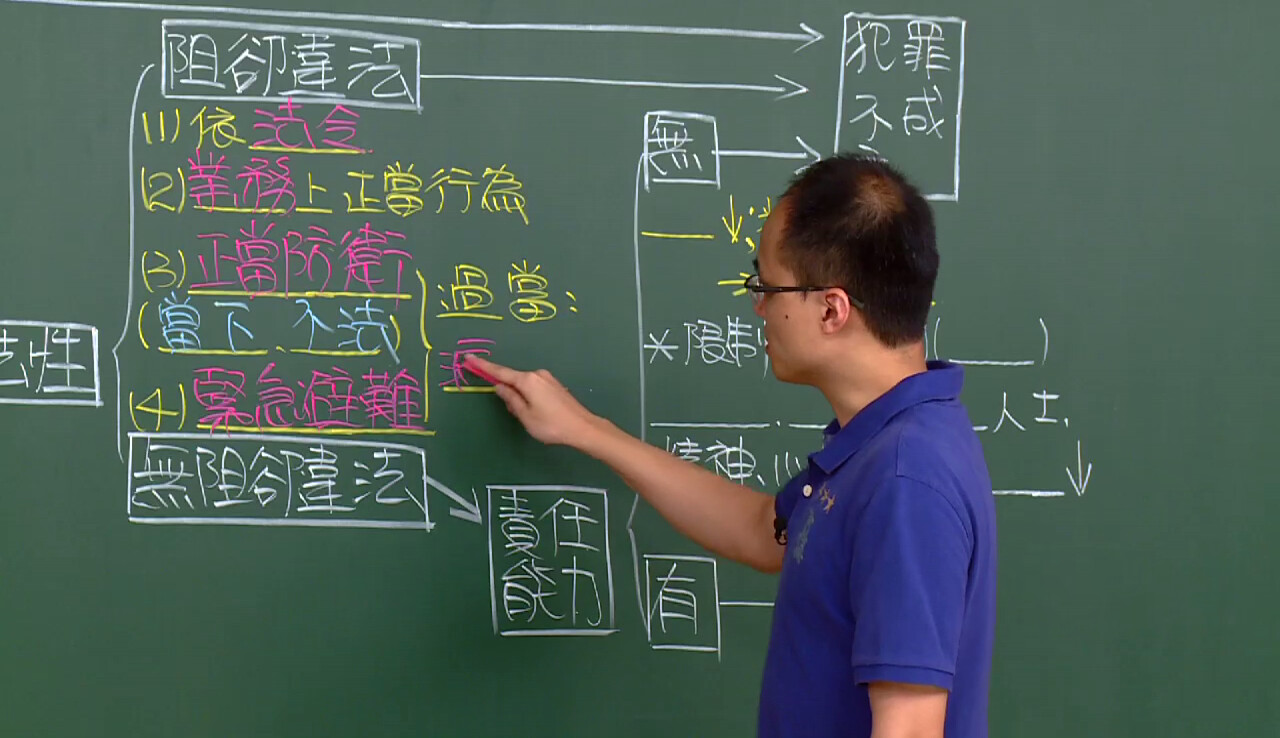 阻卻違法
(1)依法令
(2)業務上正當行為
(3)正當防衛
(當下、不法)
(4)緊急避難
過當:
無阻卻違法
責任
能力
犯罪
不成
無
*限制
( )
人士.
精神、心
有
法性